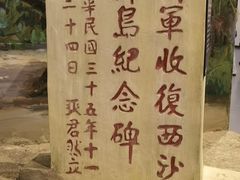 軍收復西沙
群島紀念碑
華民國三十五年十一
二十四日 張君然立